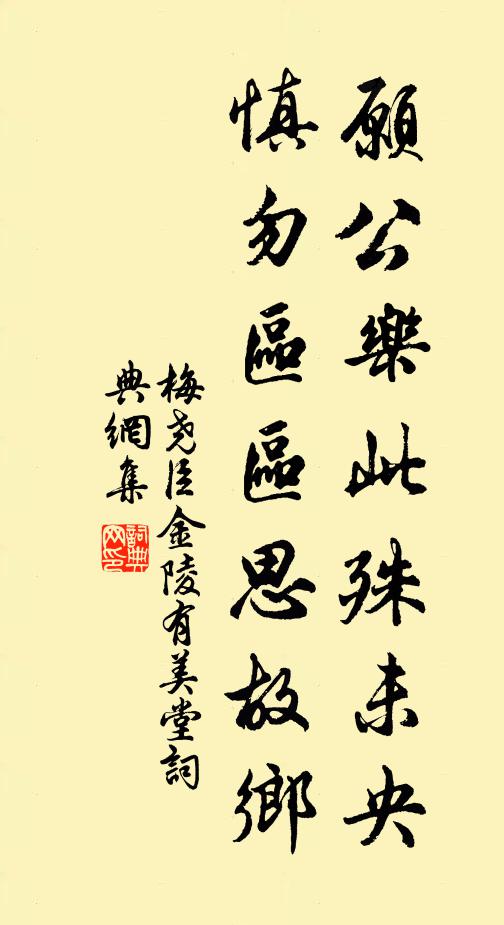 願公樂此殊未央
慎勿區區思故鄉
梅尧臣金陵有美堂詞
典網集
詞典網印